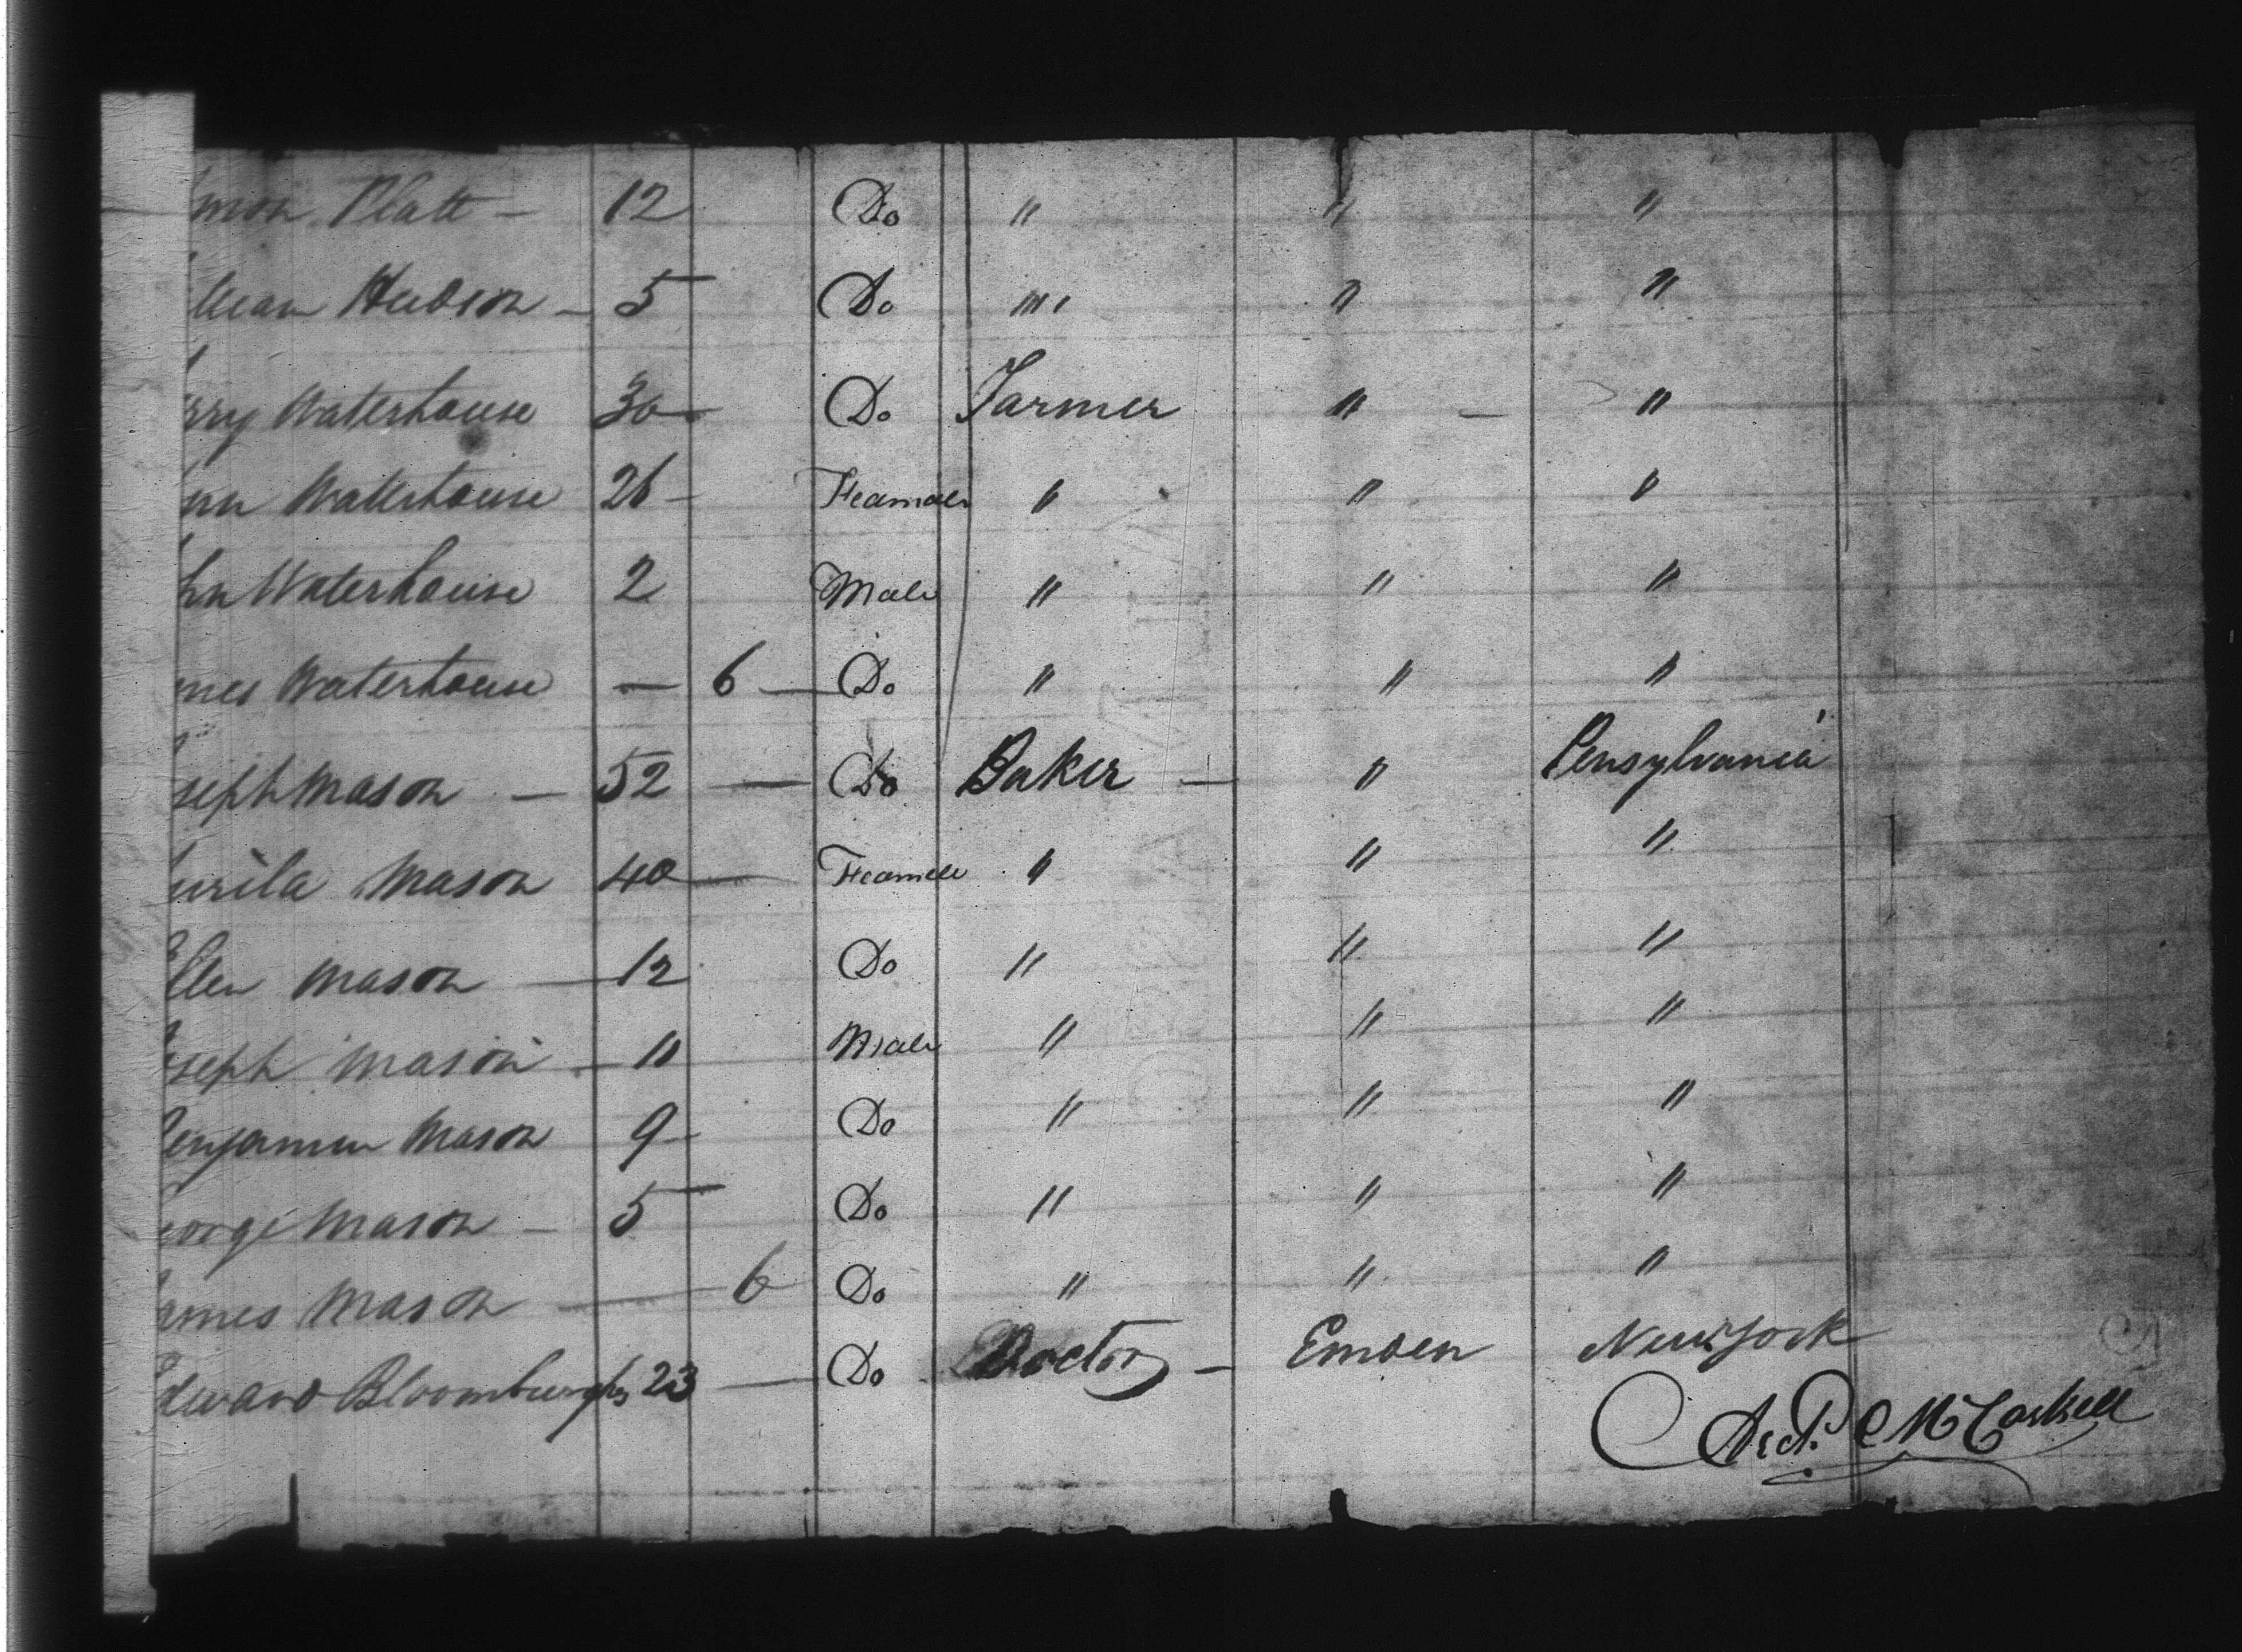 mon Platt - 12 Do " " "
lliam Hudson - 5 Do " " " "
rry Waterhouse 30 - Do Farmer " - "
nn Waterhouse 26 - Feamale " " "
hn Waterhouse 2 Male " " "
mes Waterhouse - 6 - Do " " "
seph Mason - 52 - Do Baker - " Pensylvania
Mason 40 - Feamele " " "
Ellen Mason - 12 Do " " "
oseph Mason - 10 Male " " "
Benjamin Mason 9 - Do " " "
eorge Mason - 5 Do " " "
ames Mason - 6 Do " " "
Edward Bloomburghs 23 - Do Doctor - Emden New York
Archd. McCaskell